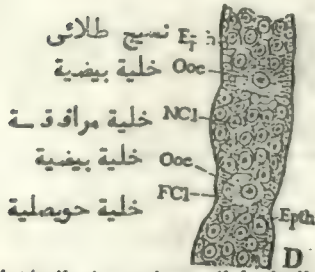 نسيج طلائى Epth
خلية بيضية Ooc
خلية مرافقة NCl
خلية بيضية Ooc
FCl
خلية حويصلية
Epth
D